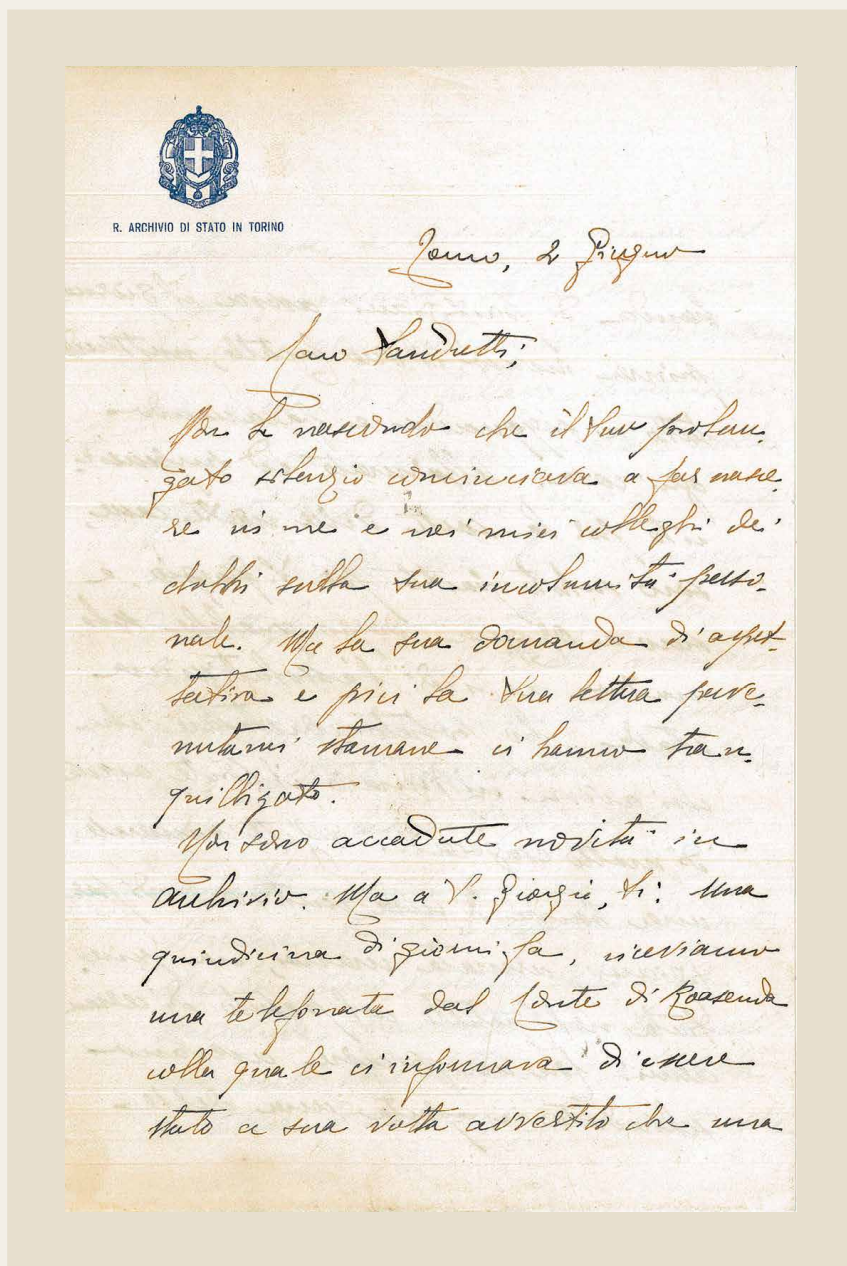 R. ARCHIVIO DI STATO IN TORINO
Torino, 2 Giugno
Caro Sandretti,
Non Le nascondo che il Suo prolun-
gato silenzio cominciava a far nasce-
re in me e nei miei colleghi dei
dubbi sulla sua incolumità perso-
nale. Ma la sua domanda di aspet-
tativa e più la Sua lettera perve-
nutami stamane ci hanno tran-
quillizato.
Non sono accadute novità in
archivio. Ma a S. Giorgio, sì: una
quindicina di giorni fa, riceviamo
una telefonata dal Conte di Roasenda
colla quale ci informava di essere
stato a sua volta avvertito che una